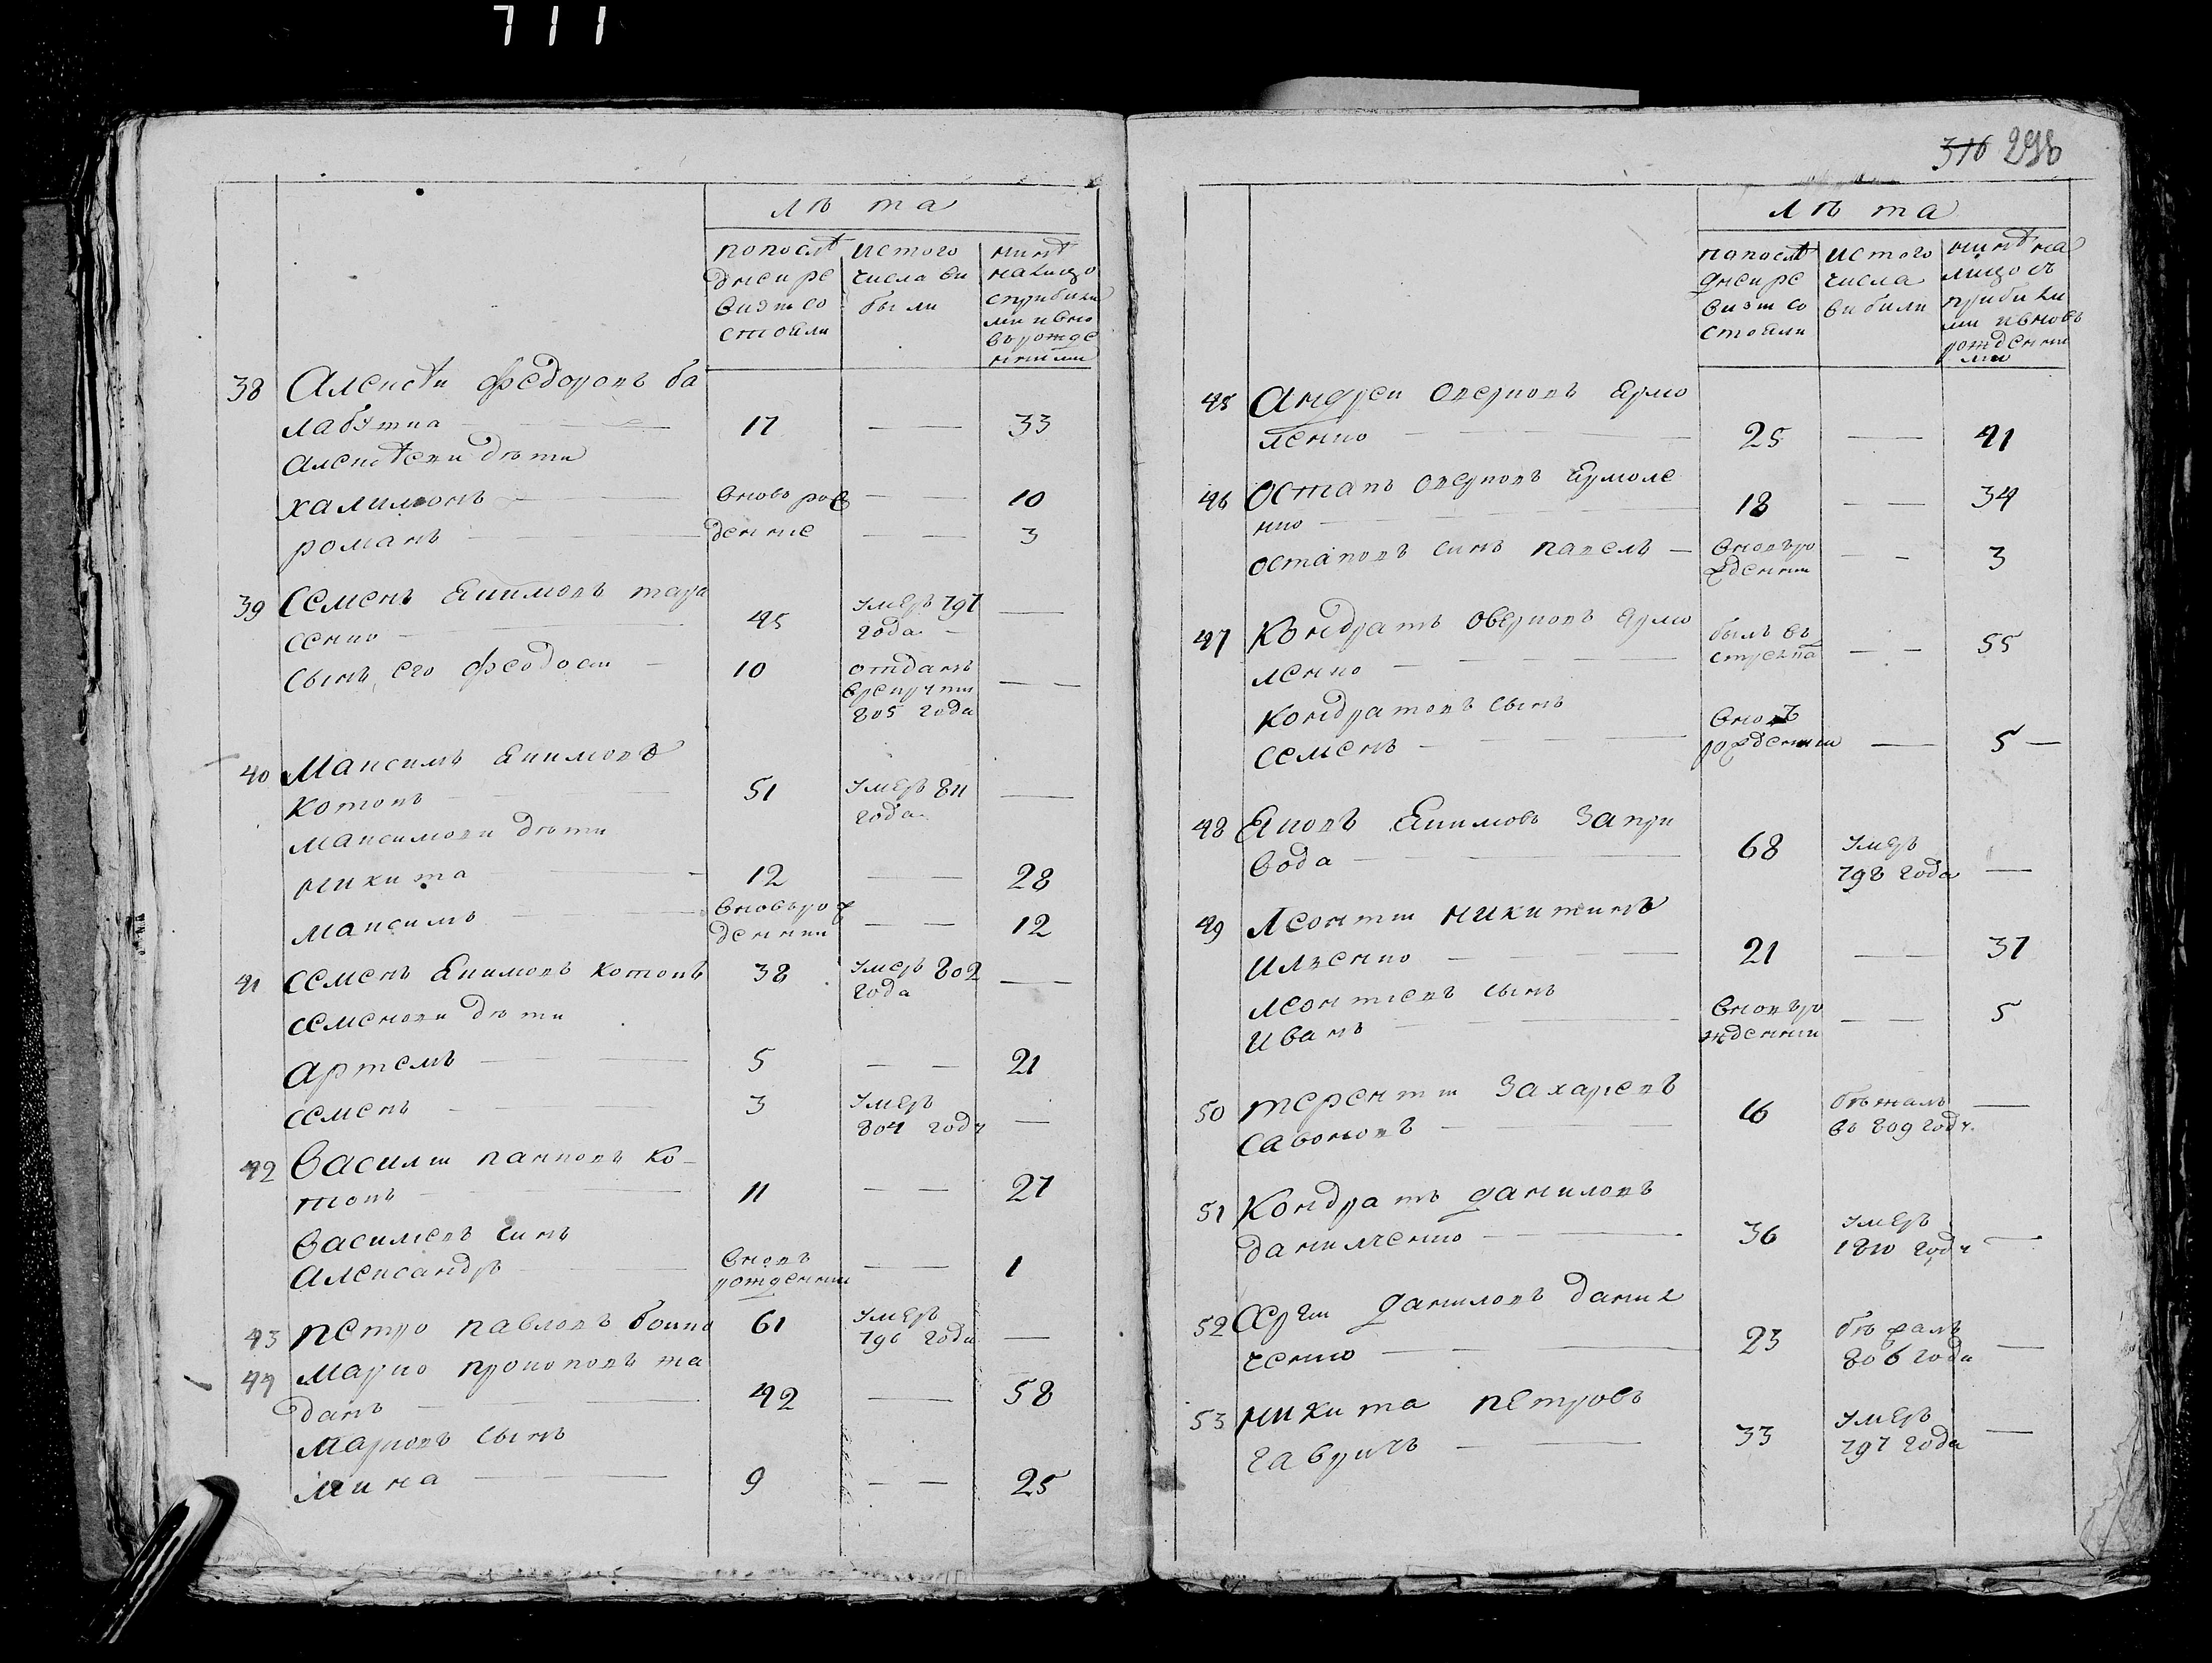 711
лѣта
попослѣ
днеи ре
визіи со
стояли
истого
числа ви
были
нинѣ
налицо
сприбили
ми ивно
ворожде
ними
38 Алексѣи федоровъ ба
лабутка 17 — — 33
алексѣеви дѣти
халимонъ вновь рож — — 10
романъ денние — — 3
39 Семенъ Екимовъ тара
сенко 45 умеръ 797 года —
сынъ его феодоси 10 отданъ
врекрути
805 года — —
40 Максимъ Екимовъ
котовъ 51 умеръ 811 —
года
максимови дѣти
никита 12 — — 28
максимъ вновь рож
денни — — 12
41 семенъ Екимовъ котовъ 38 умеръ 802
года —
семенови дѣти
артемъ 5 — — 21
семенъ 3 умеръ
804 году —
42 василии панковъ ко
товъ 11 — — 27
василиевъ синъ
александръ вновъ
рожденни — — 1
43 петро павловъ боико 61 умеръ
796 года —
44 марко прокоповъ та
данъ 42 — 58
марковъ сынъ
мина 9 — — 25
316 298
лѣта
попослѣ
днеи ре
визіи со
стояли
истого
числа
вибили
нинѣ на
лицо съ
прибили
ми ивновь
рожденни
ми
45 Андреи оверковъ Ярмо
ленко 25 — 41
46 Остапъ оверковъ Ермоле
нко 18 — — 34
остаповъ синъ павелъ — вновъро
жденни — — 3
47 Кондратъ оверковъ Ярмо
ленко былъ въ — — 55
кондратовъ сынъ
семенъ вновъ
рожденни — 5 —
48 Яковъ Екимовъ Запри
вода 68 умеръ
798 года —
49 Леонтии никитинъ
илченко 21 — — 37
леонтиевъ сынъ
иванъ вновъро
жденни — — 5
50 терентии Захаревъ
савоновъ 16 бѣжалъ
въ 809 году —
51 Кондратъ даниловъ
данилченко 36 умеръ
1810 году —
52 Сергии даниловъ данил
ченко 23 бѣжалъ
806 года —
53 никита петровъ
гавричъ 33 умеръ
797 года —